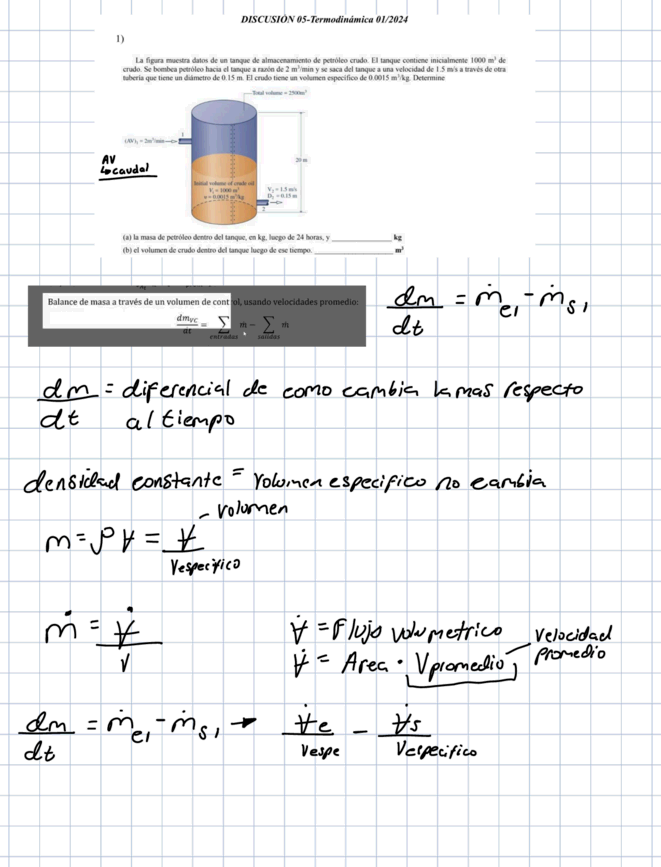 DISCUSIÓN 05-Termodinámica 01/2024
1)
La figura muestra datos de un tanque de almacenamiento de petróleo crudo. El tanque contiene inicialmente 1000 m³ de
crudo. Se bombea petróleo hacia el tanque a razón de 2 m³/min y se saca del tanque a una velocidad de 1.5 m/s a través de otra
tubería que tiene un diámetro de 0.15 m. El crudo tiene un volumen específico de 0.0015 m³/kg. Determine
Total volume = 2500m³
1
(AV)₁ = 2m³/min
AV
↳caudal
20 m
Initial volume of crude oil
Vᵢ = 1000 m³
υ = 0.0015 m³/kg
V₂ = 1.5 m/s
D₂ = 0.15 m
2
(a) la masa de petróleo dentro del tanque, en kg, luego de 24 horas, y ____________ kg
(b) el volumen de crudo dentro del tanque luego de ese tiempo. ____________ m³
Balance de masa a través de un volumen de control, usando velocidades promedio:
dm_VC/dt = ∑entradas ṁ − ∑salidas ṁ
dm/dt = ṁe₁ - ṁs₁
dm/dt = diferencial de como cambia la mas respecto
al tiempo
densidad constante = Volumen especifico no cambia
volumen
m = ρV = V/Vespecifico
ṁ = V̇/v
V̇ = Flujo volumetrico
V̇ = Area · Vpromedio
velocidad
promedio
dm/dt = ṁe₁ - ṁs₁ → V̇e/Vespe - V̇s/Vespecifico